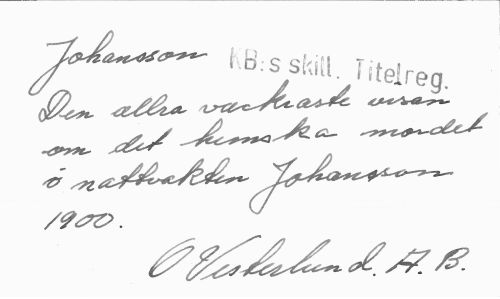 Johansson KB:s skill. Titelreg.
Den allra vackraste visan
om det hemska mordet
å nattvakten Johansson
1900.
O Vesterlund. A. B.